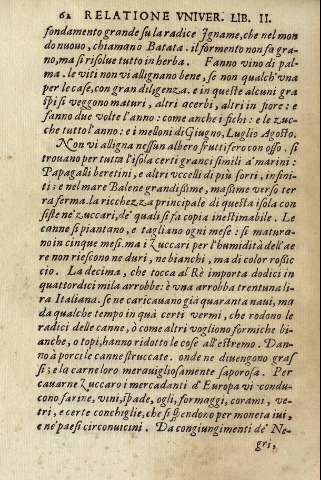 62 RELATIONE VNIVER. LIB. II.
fondamento grande su la radice Igname, che nel mon
do nuouo, chiamano Batata. il formento non fa gra-
no, ma si risolue tutto in herba. Fanno vino di pal-
ma. le viti non vi allignano bene, se non qualch'vna
per le case, con gran diligenza. e in queste alcuni gra
spi si veggono maturi, altri acerbi, altri in fiore: e
fanno due volte l'anno: come anche i fichi: e le zuc-
che tutto l'anno: e i melloni di Giugno, Luglio Agosto.
Non vi alligna nessun albero fruttifero con osso. si
trouano per tutta l'isola certi granci simili a' marini:
Papagalli beretini, e altri vccelli di più sorti, infini-
ti: e nel mare Balene grandissime, massime verso ter
ra ferma. la ricchezza principale di questa isola con
siste ne' zuccari, de' quali si fa copia inestimabile. Le
canne si piantono, e tagliano ogni mese: si matura-
no in cinque mesi. ma i Zuccari per l'humidità dell'ae
re non riescono ne duri, ne bianchi, ma di color rossic
cio. La decima, che tocca al Rè importa dodici in
quattordici mila arrobbe: è vna arrobba trentuna li-
ra Italiana. se ne caricauano già quaranta naui, ma
da qualche tempo in quà certi vermi, che rodono le
radici delle canne, ò come altri vogliono formiche bi-
anche, o topi, hanno ridotto le cose all'estremo. Dan-
no à porci le canne struccate. onde ne diuengono graf
si; e la carne loro merauigliosamente saporosa. Per
cauarne Zuccaro i mercadanti d'Europa vi condu-
cono farine, vini, spade, ogli, formaggi, corami, ve-
tri, e certe conchiglie, che si spendono per moneta iui,
e ne' paesi circonuicini. Da congiungimenti de' Ne-
gri,